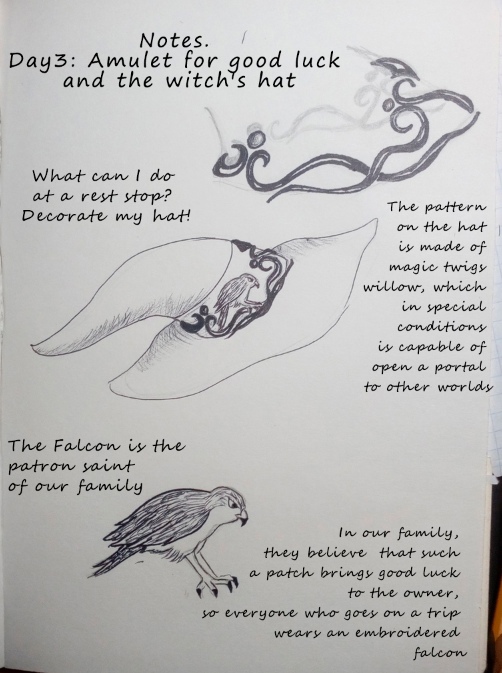 Notes.
Day3: Amulet for good luck
and the witch's hat
What can I do
at a rest stop?
Decorate my hat!
The pattern
on the hat
is made of
magic twigs
willow, which
in special
conditions
is capable of
open a portal
to other worlds
The Falcon is the
patron saint
of our family
In our family,
they believe that such
a patch brings good luck
to the owner,
so everyone who goes on a trip
wears an embroidered
falcon